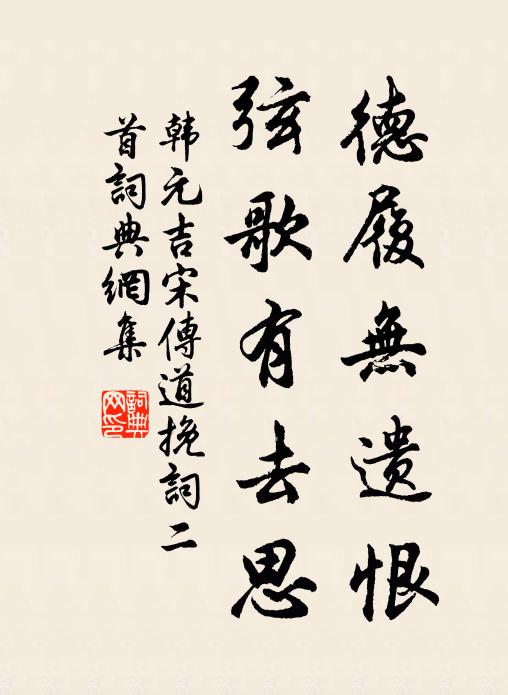 德履無遺恨
弦歌有去思
韩元吉宋傅道挽詞二
首詞典網集
詞典
网印